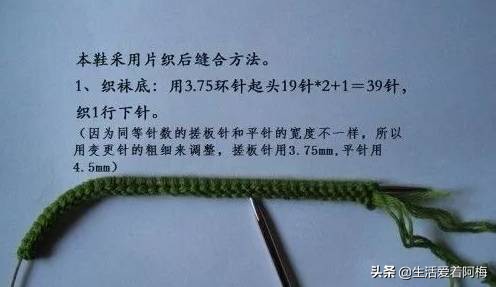 本鞋采用片织后缝合方法。
1、织袜底：用3.75环针起头19针*2+1＝39针，
织1行下针。
（因为同等针数的搓板针和平针的宽度不一样，所以
用变更针的粗细来调整，搓板针用3.75mm.平针用
4.5mm）
头条 @生活爱着阿梅